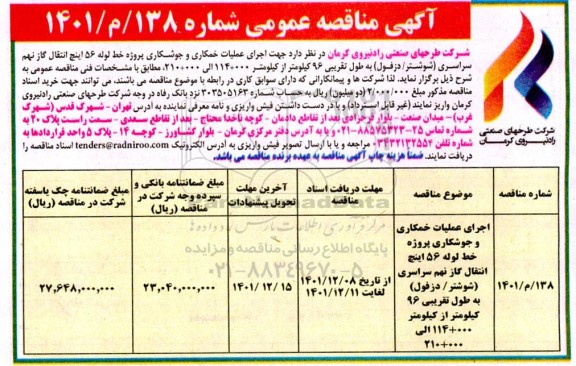 آگهی مناقصه عمومی شماره ۱۳۸/م/۱۴۰۱
شرکت طرحهای صنعتی رادنیروی کرمان در نظر دارد جهت اجرای عملیات خمکاری و جوشکاری پروژه خط لوله ۵۶ اینچ انتقال گاز نهم
سراسری (شوشتر/دزفول) به طول تقریبی ۹۶ کیلومتر از کیلومتر ۱۱۴+۰۰۰ الی ۲۱۰+۰۰۰، مطابق با مشخصات فنی مناقصه عمومی به
شرح ذیل برگزار نماید. لذا شرکت ها و پیمانکارانی که دارای سوابق کاری در رابطه با موضوع مناقصه می باشند، می توانند جهت خرید اسناد
مناقصه مذکور مبلغ ۲/۰۰۰/۰۰۰ (دو میلیون) ریال به حساب شماره ۳۰۳۵۰۵۱۶۳ نزد بانک رفاه در وجه شرکت طرحهای صنعتی رادنیروی
کرمان واریز نمایند (غیر قابل استرداد) و با در دست داشتن فیش واریزی و نامه معرفی نماینده به آدرس تهران - شهرک قدس (شهرک
غرب) - میدان صنعت - بلوار فرحزادی - بعد از تقاطع دادمان - کوچه ناخدا محتاج - بعد از تقاطع سعدی - سمت راست پلاک ۲۰ به
شماره تماس ۲۵-۸۸۵۷۵۴۲۳-۰۲۱ و یا به آدرس دفتر مرکزی کرمان - بلوار کشاورز - کوچه ۱۴ - پلاک ۵ واحد قراردادها به
شماره تلفن ۰۳۴۳۲۱۳۲۵۵۴ مراجعه و یا با ارسال تصویر فیش واریزی به آدرس الکترونیک tenders@radniroo.com اسناد مناقصه را
دریافت نمایند. ضمناً هزینه چاپ آگهی مناقصه به عهده برنده مناقصه می باشد.
شرکت طرحهای صنعتی
رادنیروی کرمان
شماره مناقصه
موضوع مناقصه
مهلت دریافت اسناد مناقصه
آخرین مهلت تحویل پیشنهادات
مبلغ ضمانتنامه بانکی و سپرده وجه شرکت در مناقصه (ریال)
مبلغ ضمانتنامه چک یاسفته شرکت در مناقصه (ریال)
۱۳۸/م/۱۴۰۱
اجرای عملیات خمکاری
و جوشکاری پروژه
خط لوله ۵۶ اینچ
انتقال گاز نهم سراسری
(شوشتر/ دزفول)
به طول تقریبی ۹۶
کیلومتر از کیلومتر
۱۱۴+۰۰۰ الی
۲۱۰+۰۰۰
از تاریخ ۱۴۰۱/۱۲/۰۸
لغایت ۱۴۰۱/۱۲/۱۱
۱۴۰۱/۱۲/۱۵
۲۳,۰۴۰,۰۰۰,۰۰۰
۲۷,۶۴۸,۰۰۰,۰۰۰
پایگاه اطلاع رسانی مناقصه و مزایده
۰۲۱-۸۸۳۴۹۶۷۰-۵